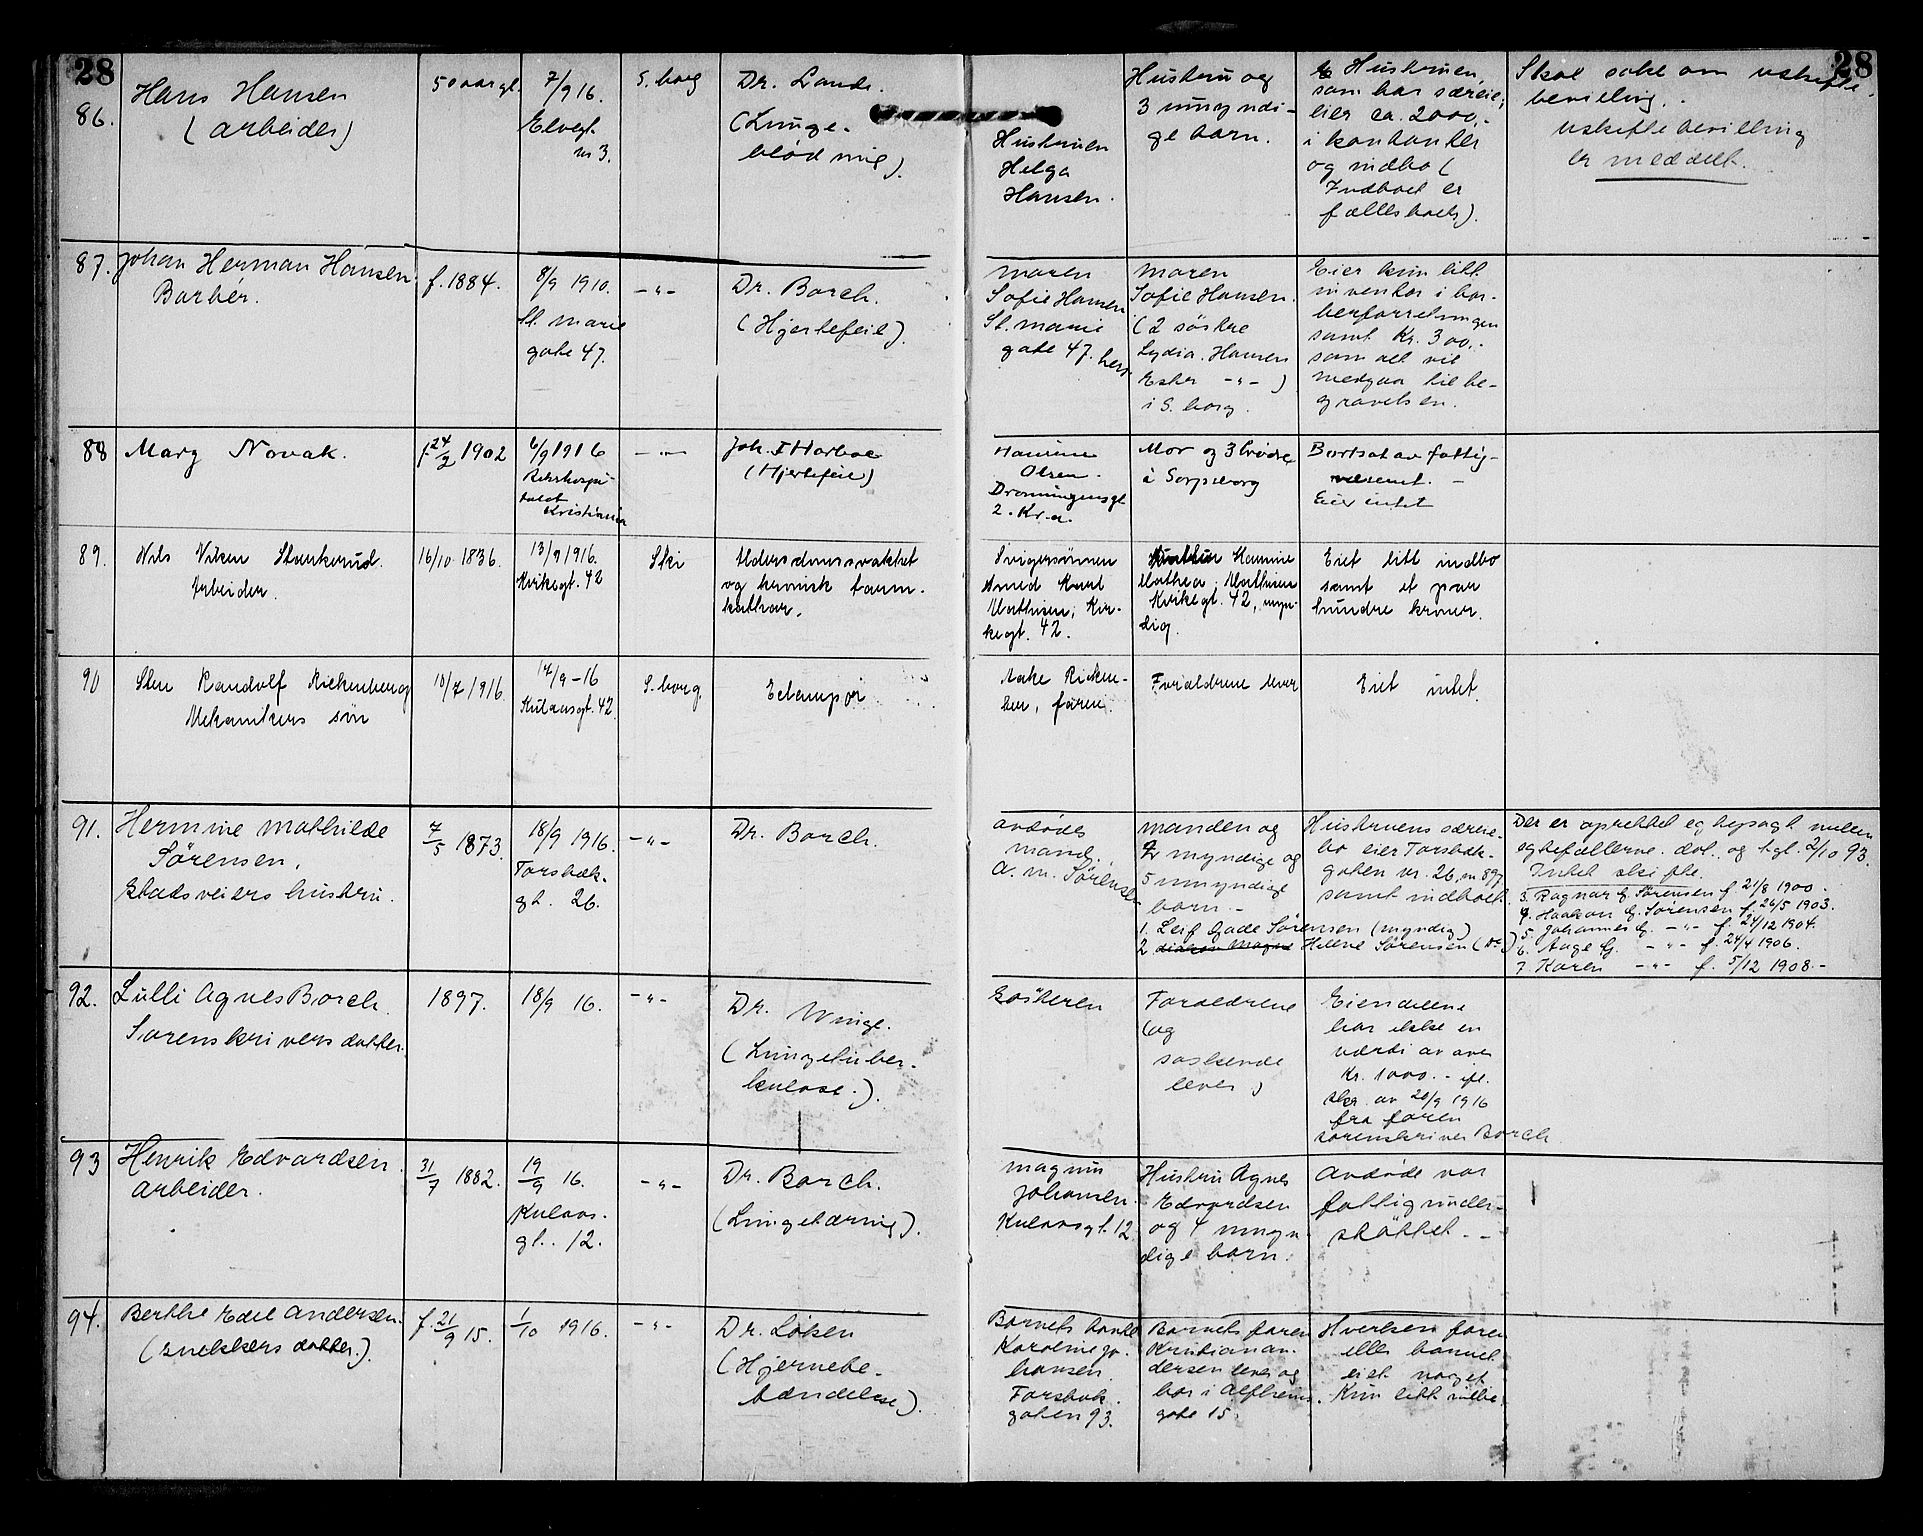 28
28
86.
Hans Hansen
(arbeider)
50 aar gl.
7/9 16.
Elvegt.
nr 3.
S. borg
Dr. Lande.
(Lunge-
blødning).
Hustruen
Helga
Hansen.
Hustru og
3 umyndi-
ge barn.
Hustruen,
som har særeie,
eier ca. 2000,-
i kontanter
og indbo (
Indboet er
fællesboets).
Skal søke om uskifte-
bevilling.
Uskiftebevilling
er meddelt.
87.
Johan Herman Hansen.
Barbér.
f. 1884.
8/9 1910.
St. Marie
gate 47.
-"-
Dr. Borch.
(Hjertefeil).
Maren
Sofie Hansen
St. Marie
gate 47. her.
Maren
Sofie Hansen.
(2 søstre
Lydia Hansen
Ester -"- )
i S. borg.
Eier kun litt
inventar i bar-
berforretningen
samt Kr. 300,-
som alt vil
medgaa til be-
gravelsen.
88
Mary Novak.
f. 24/2 1902
6/9 1916
Rikshospi-
talet
Kristiania
-"-
Joh. F Harboe
(Hjertefeil)
Hanine
Olsen.
Dronningensgt
2. Kr.a.
Mor og 3 brødre
i Sarpsborg
Bortsat av fattig-
væsenet. -
Eier intet
89.
Nils Nilsen Stenkerud.
Arbeider.
16/10 1836.
13/9 1916.
Kirkegt. 42
Ski
Alderdomssvakhet
og kronisk tarm-
kathar.
Svigersønnen
smed Karl
Mathisen, Kir-
kegt. 42.
Hannine
Mathea Mathisen
Kirkegt. 42, myn-
dig.
Eiet litt indbo
samt et par
hundre kroner.
90
Sten Randolf Rickenberg
Mekanikers søn
10/7 1916.
14/9-16
Kulaasgt. 42
S. borg
Eclampsi
Make Ricken-
ber, faren.
Forældrene lever
Eiet intet
91.
Hermine Mathilde
Sørensen,
Stadsveiers hustru.
7/5 1873.
18/9 1916.
Torsbæk.
gt. 26.
-"-
Dr. Borch.
avdødes
mand,
A. M. Sørensen
Manden og
2 myndige og
5 umyndige
barn. -
1. Leif Gade Sørensen (myndig)
2. Helene Sørensen (do)
Hustruens særeie-
bo eier Torsbæk-
gaten nr. 26, m 897
samt indboet.
Der er oprettet egtepagt mellem
egtefællerne. dat. og tgl. 2/10 93.
Intet skifte.
3. Ragnar G. Sørensen f. 21/8 1900.
4. Haakon G. Sørensen f. 26/5 1903.
5. Johannes G. -"- f. 24/12 1904.
6. Aage G. -"- f. 24/4 1906.
7. Karen -"- f. 5/12 1908.-
92.
Lulli Agnes Borch.
Sorenskrivers datter.
1897.
18/9 16.
-"-
Dr. Winge.
(Lungetuber-
kulose.).
Søsteren
Forældrene
(og
søskende
lever.)
Eiendelene
har ikke en
værdi av over
Kr. 1000.- ifl.
skr. av 20/9 1916
fra faren
sorenskriver Borch.
93
Henrik Edvardsen.
arbeider.
31/7 1882.
19/9 16.
Kulaas-
gt. 12.
-"-
Dr. Borch.
(Lungetæring).
Magnus
Johansen.
Kulaasgt. 12
Hustru Agnes
Edvardsen
og 4 umyn
dige barn.
Avdøde var
fattigunder-
støttet. -
94.
Berthe Edel Andersen.
(snekkers datter.).
f. 21/9 15.
1/10 1916.
-"-
Dr. Løken
(Hjernebe-
tændelse).
Barnets tante
Karoline Jo-
hansen.
Torsbæk.
gaten 93.
Barnets faren
Kristian An-
dersen lever og
bor i Alfheims-
gate 15.
Hverken faren
eller barnet
eiet noget.
Kun litt indbo.